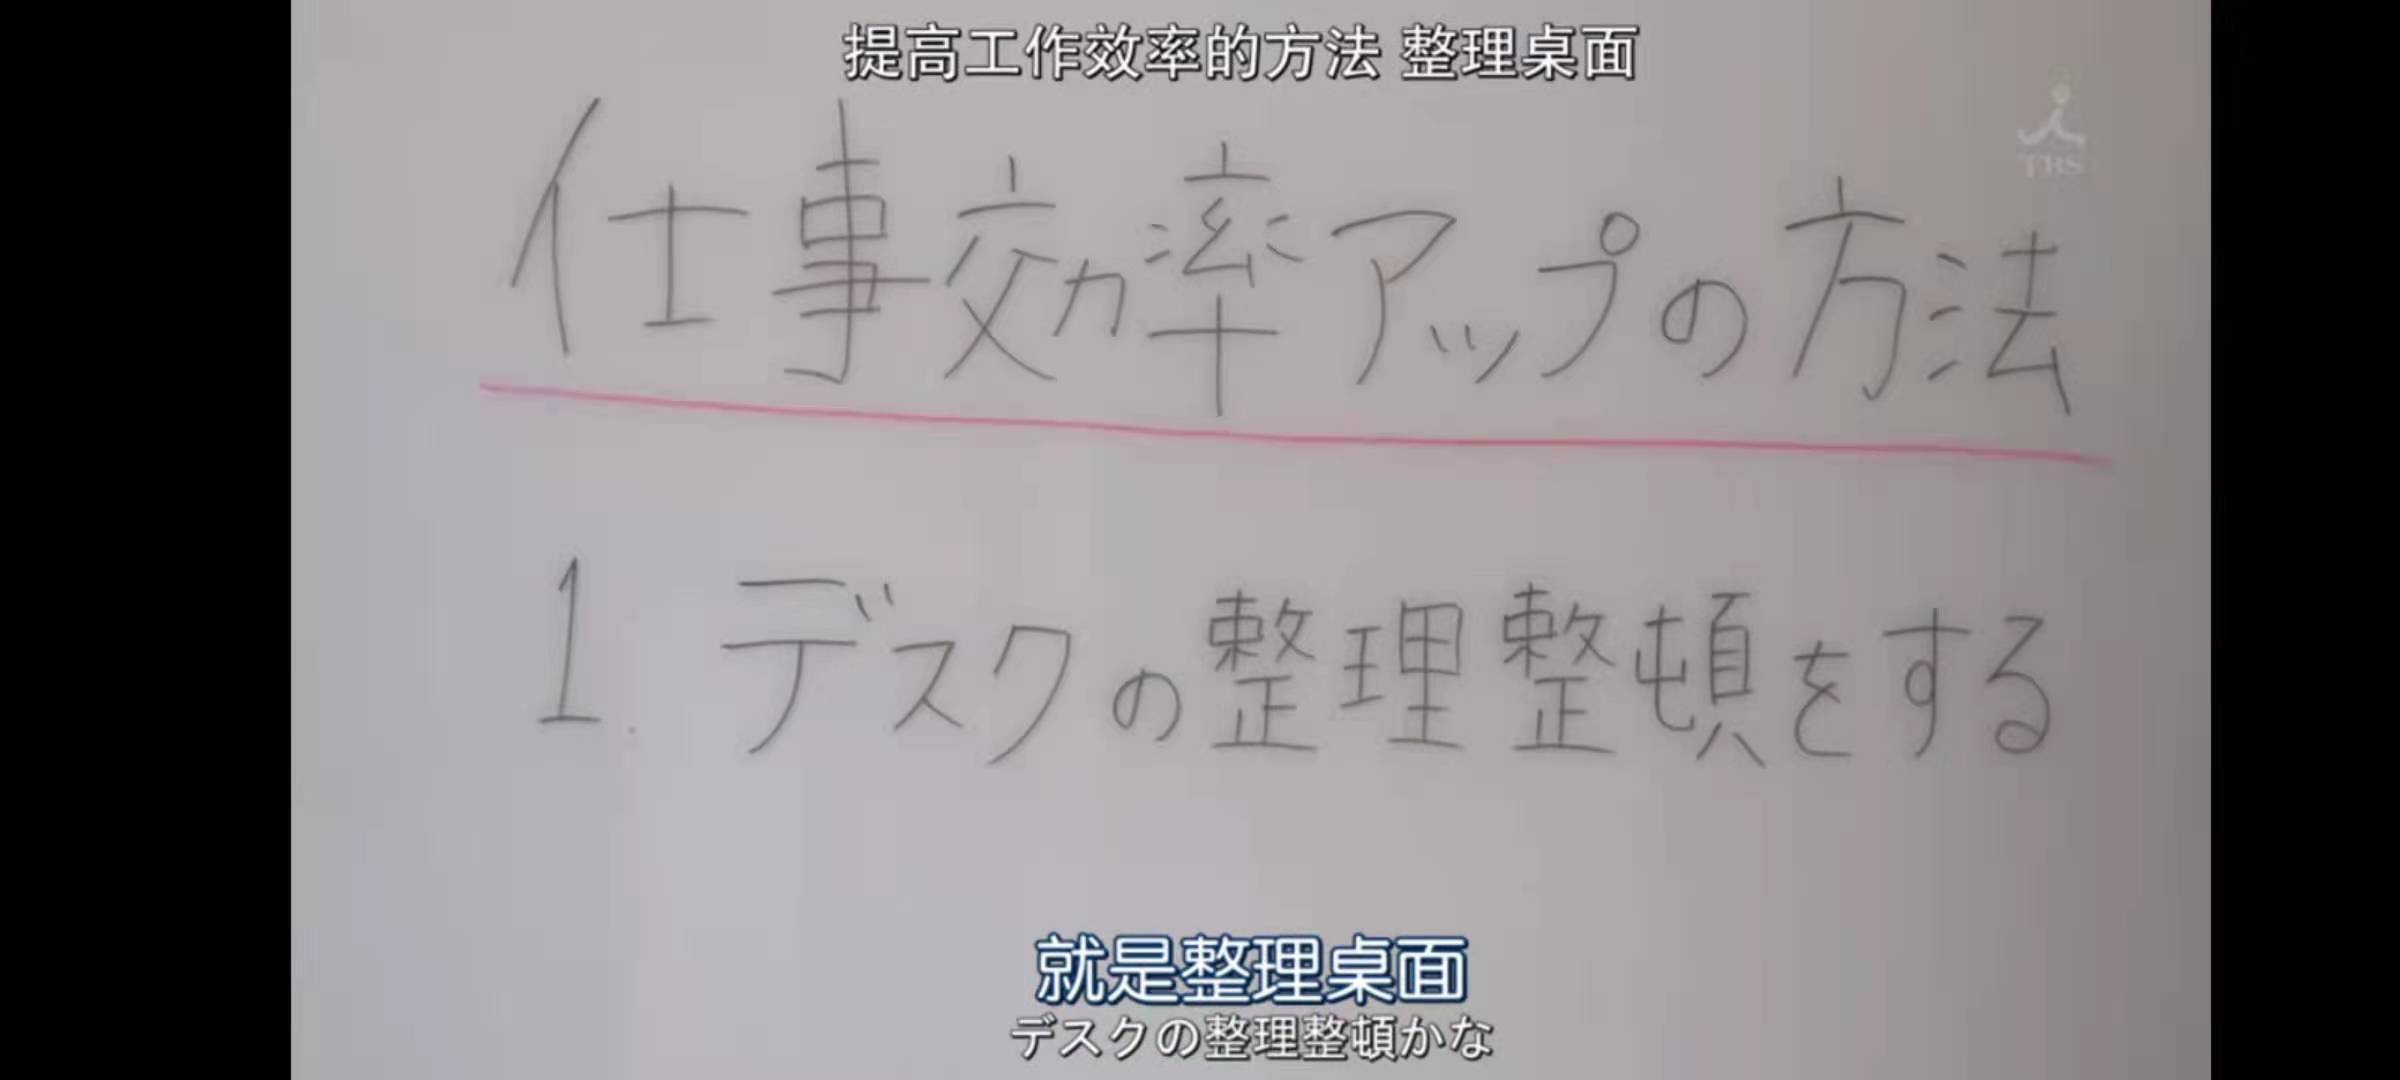 提高工作效率的方法 整理桌面
TBS
仕事効率アップの方法
1. デスクの整理整頓をする
就是整理桌面
デスクの整理整頓かな